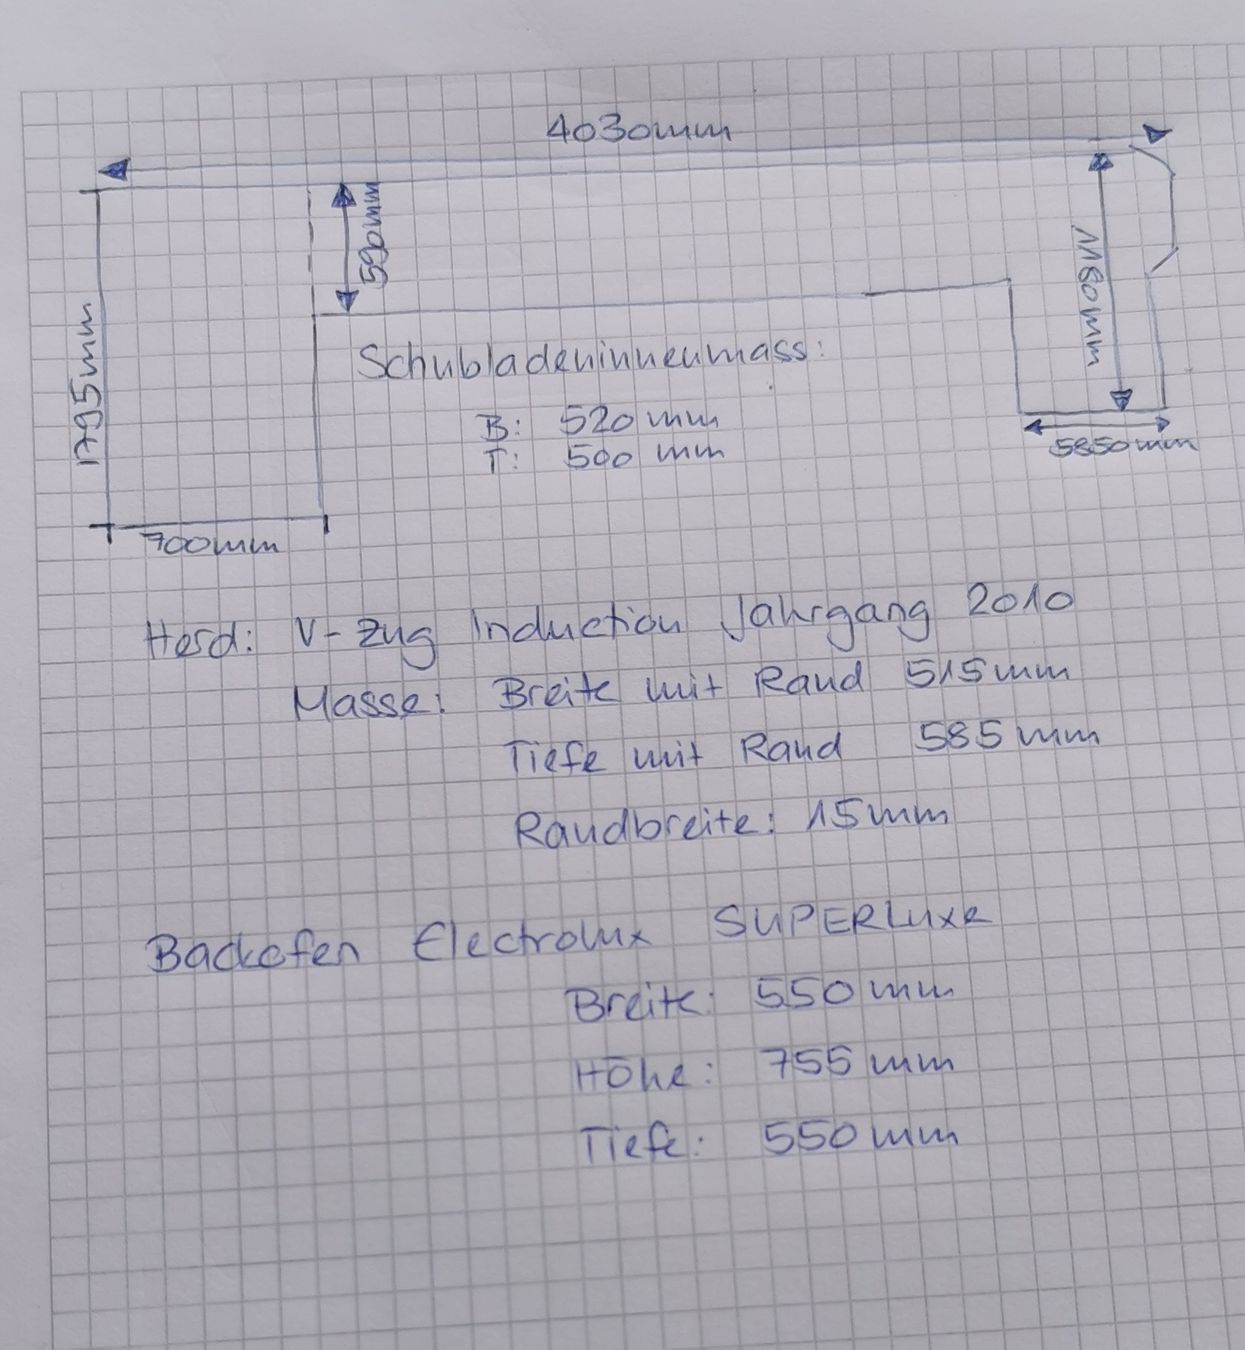 4030mm
590mm
1795mm
1180mm
Schubladeninnenmass:
B: 520 mm
T: 500 mm
5850mm
700mm
Herd: V-Zug Induction Jahrgang 2010
Masse: Breite mit Rand 515mm
Tiefe mit Rand 585mm
Randbreite: 15mm
Backofen Electrolux SUPERLUXE
Breite: 550mm
Höhe: 755mm
Tiefe: 550mm